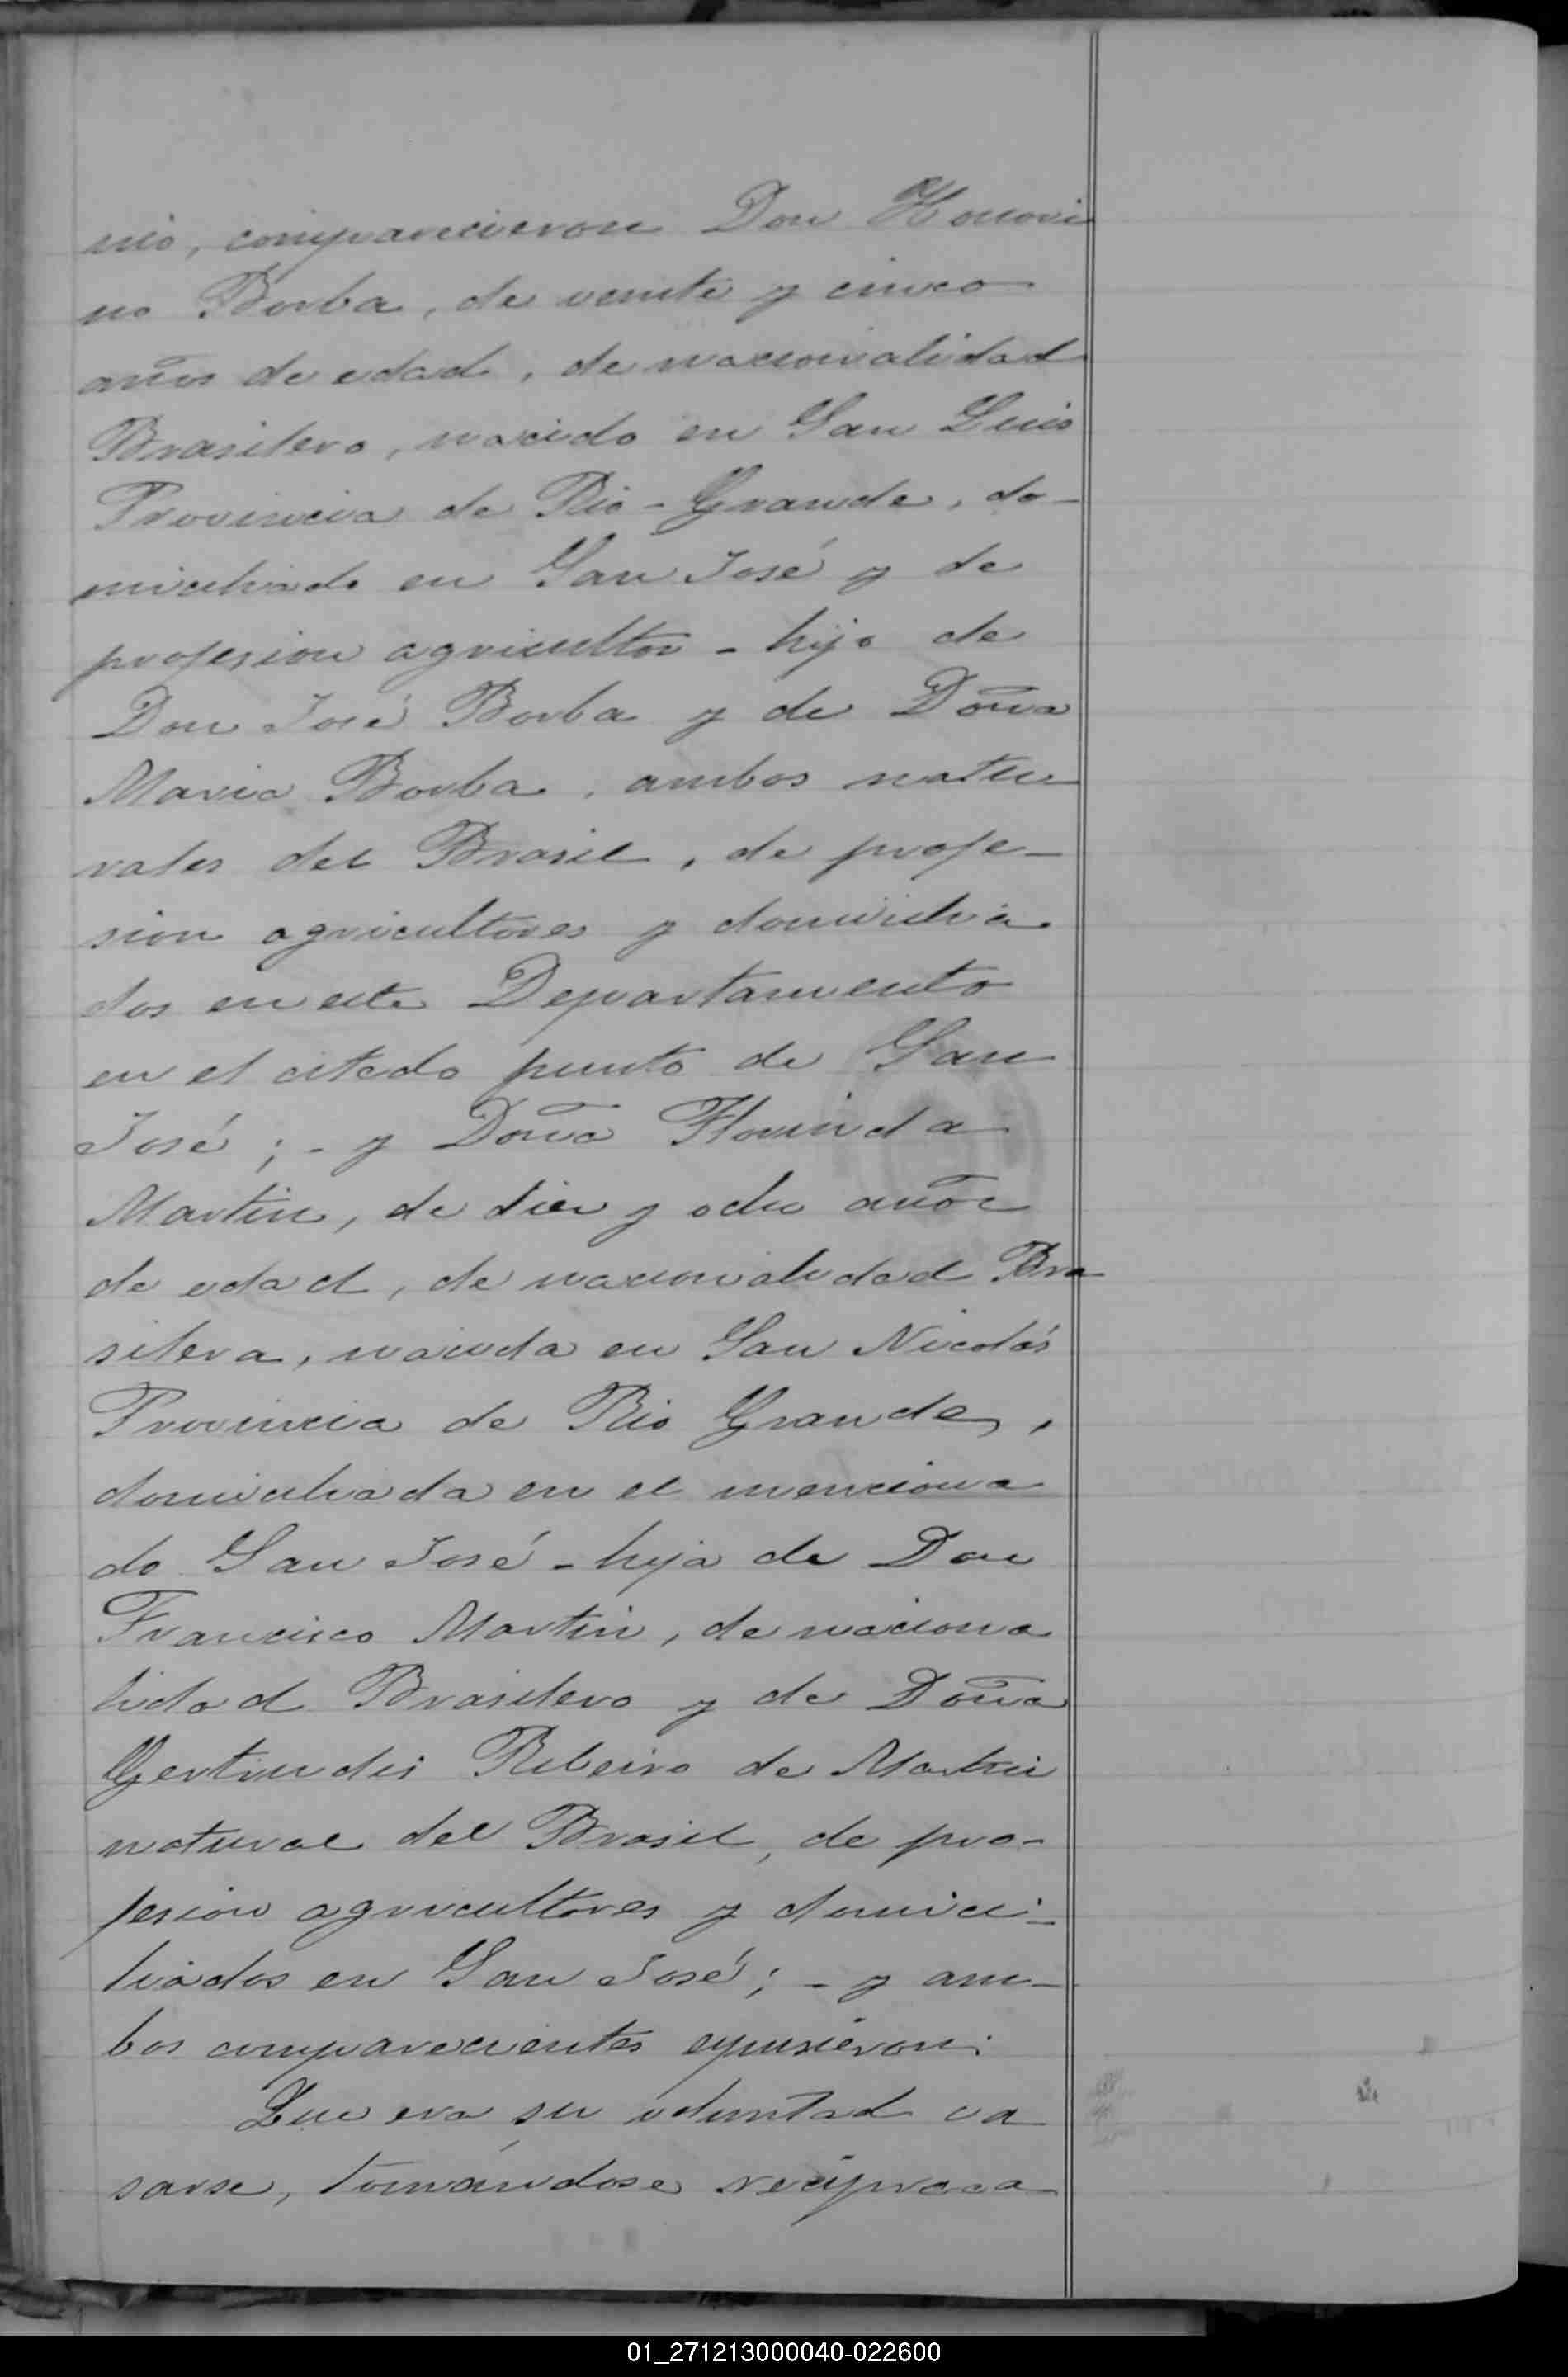 nio, comparecieron Don Honori
no Borba, de veinte y cinco
años de edad, de nacionalidad
Brasilero, nacido en San Luis
Provincia de Rio-Grande, do-
miciliado en San José y de
profesion agricultor - hijo de
Don José Borba y de Doña
Maria Borba, ambos natu
rales del Brasil, de profe-
sion agricultores y domicilia
dos en este Departamento
en el citado punto de San
José; - y Doña Florinda
Martin, de diez y ocho años
de edad, de nacionalidad Bra
silera, nacida en San Nicolás
Provincia de Rio Grande,
domiciliada en el menciona
do San José - hija de Don
Francisco Martin, de naciona
lidad Brasilero y de Doña
Gertrudis Ribeiro de Martin
natural del Brasil, de pro-
fesion agricultores y domici-
liados en San José; - y am-
bos comparecientes expusieron:
Que era su voluntad ca
sarse, tomándose reciproca
01_271213000040-022600